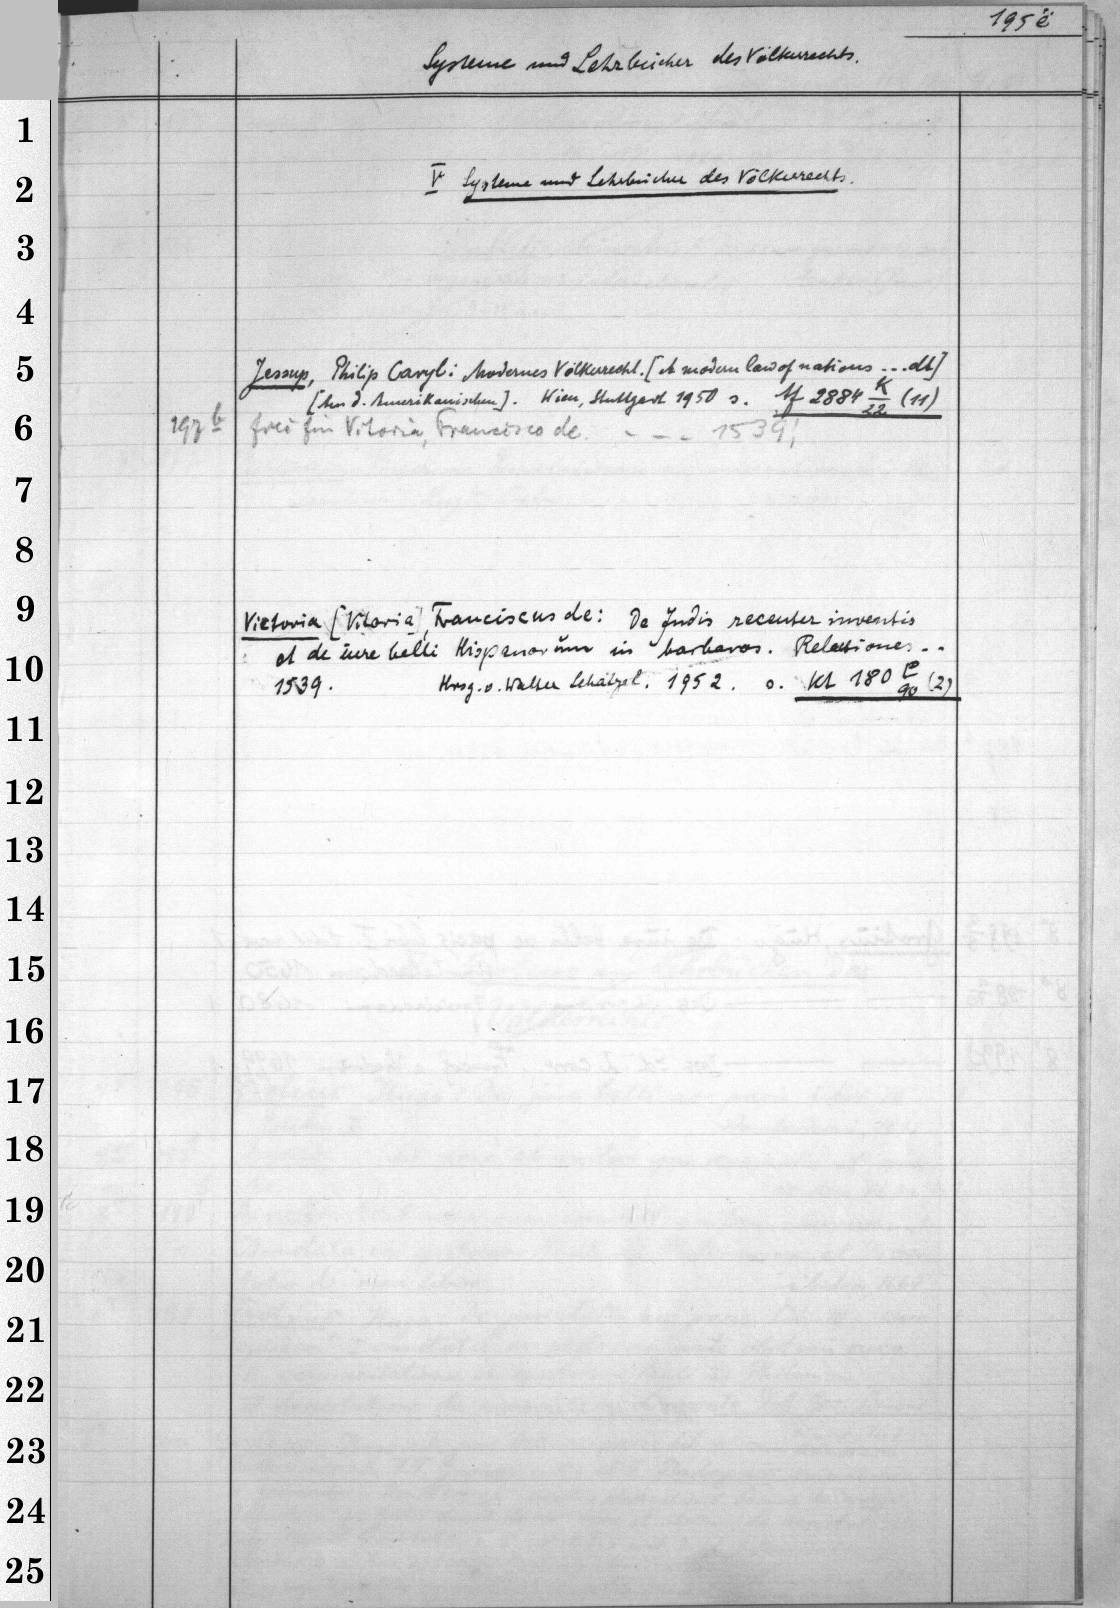 195 ë
Systeme und Lehrbücher des Völkerrechts.
V Systeme und Lehrbücher des Völkerrechts.
Jessup, Philip Caryl: Modernes Völkerrecht. [A modern law of nations ... dt]
[Aus d. Amerikanischen]. Wien, Stuttgart 1950 s. Af 2884 K/22 (11)
197 b frei für Vitoria, Francisco de. - - - 1539!
Victoria [Vitoria], Franciscus de: De Indis recenter inventis
et de iure belli Hispanorum in barbaros. Relectiones - -
1539. Hrsg. v. Walter Schätzel. 1952. o. Kt 180 P/90 (2)
1
2
3
4
5
6
7
8
9
10
11
12
13
14
15
16
17
18
19
20
21
22
23
24
25